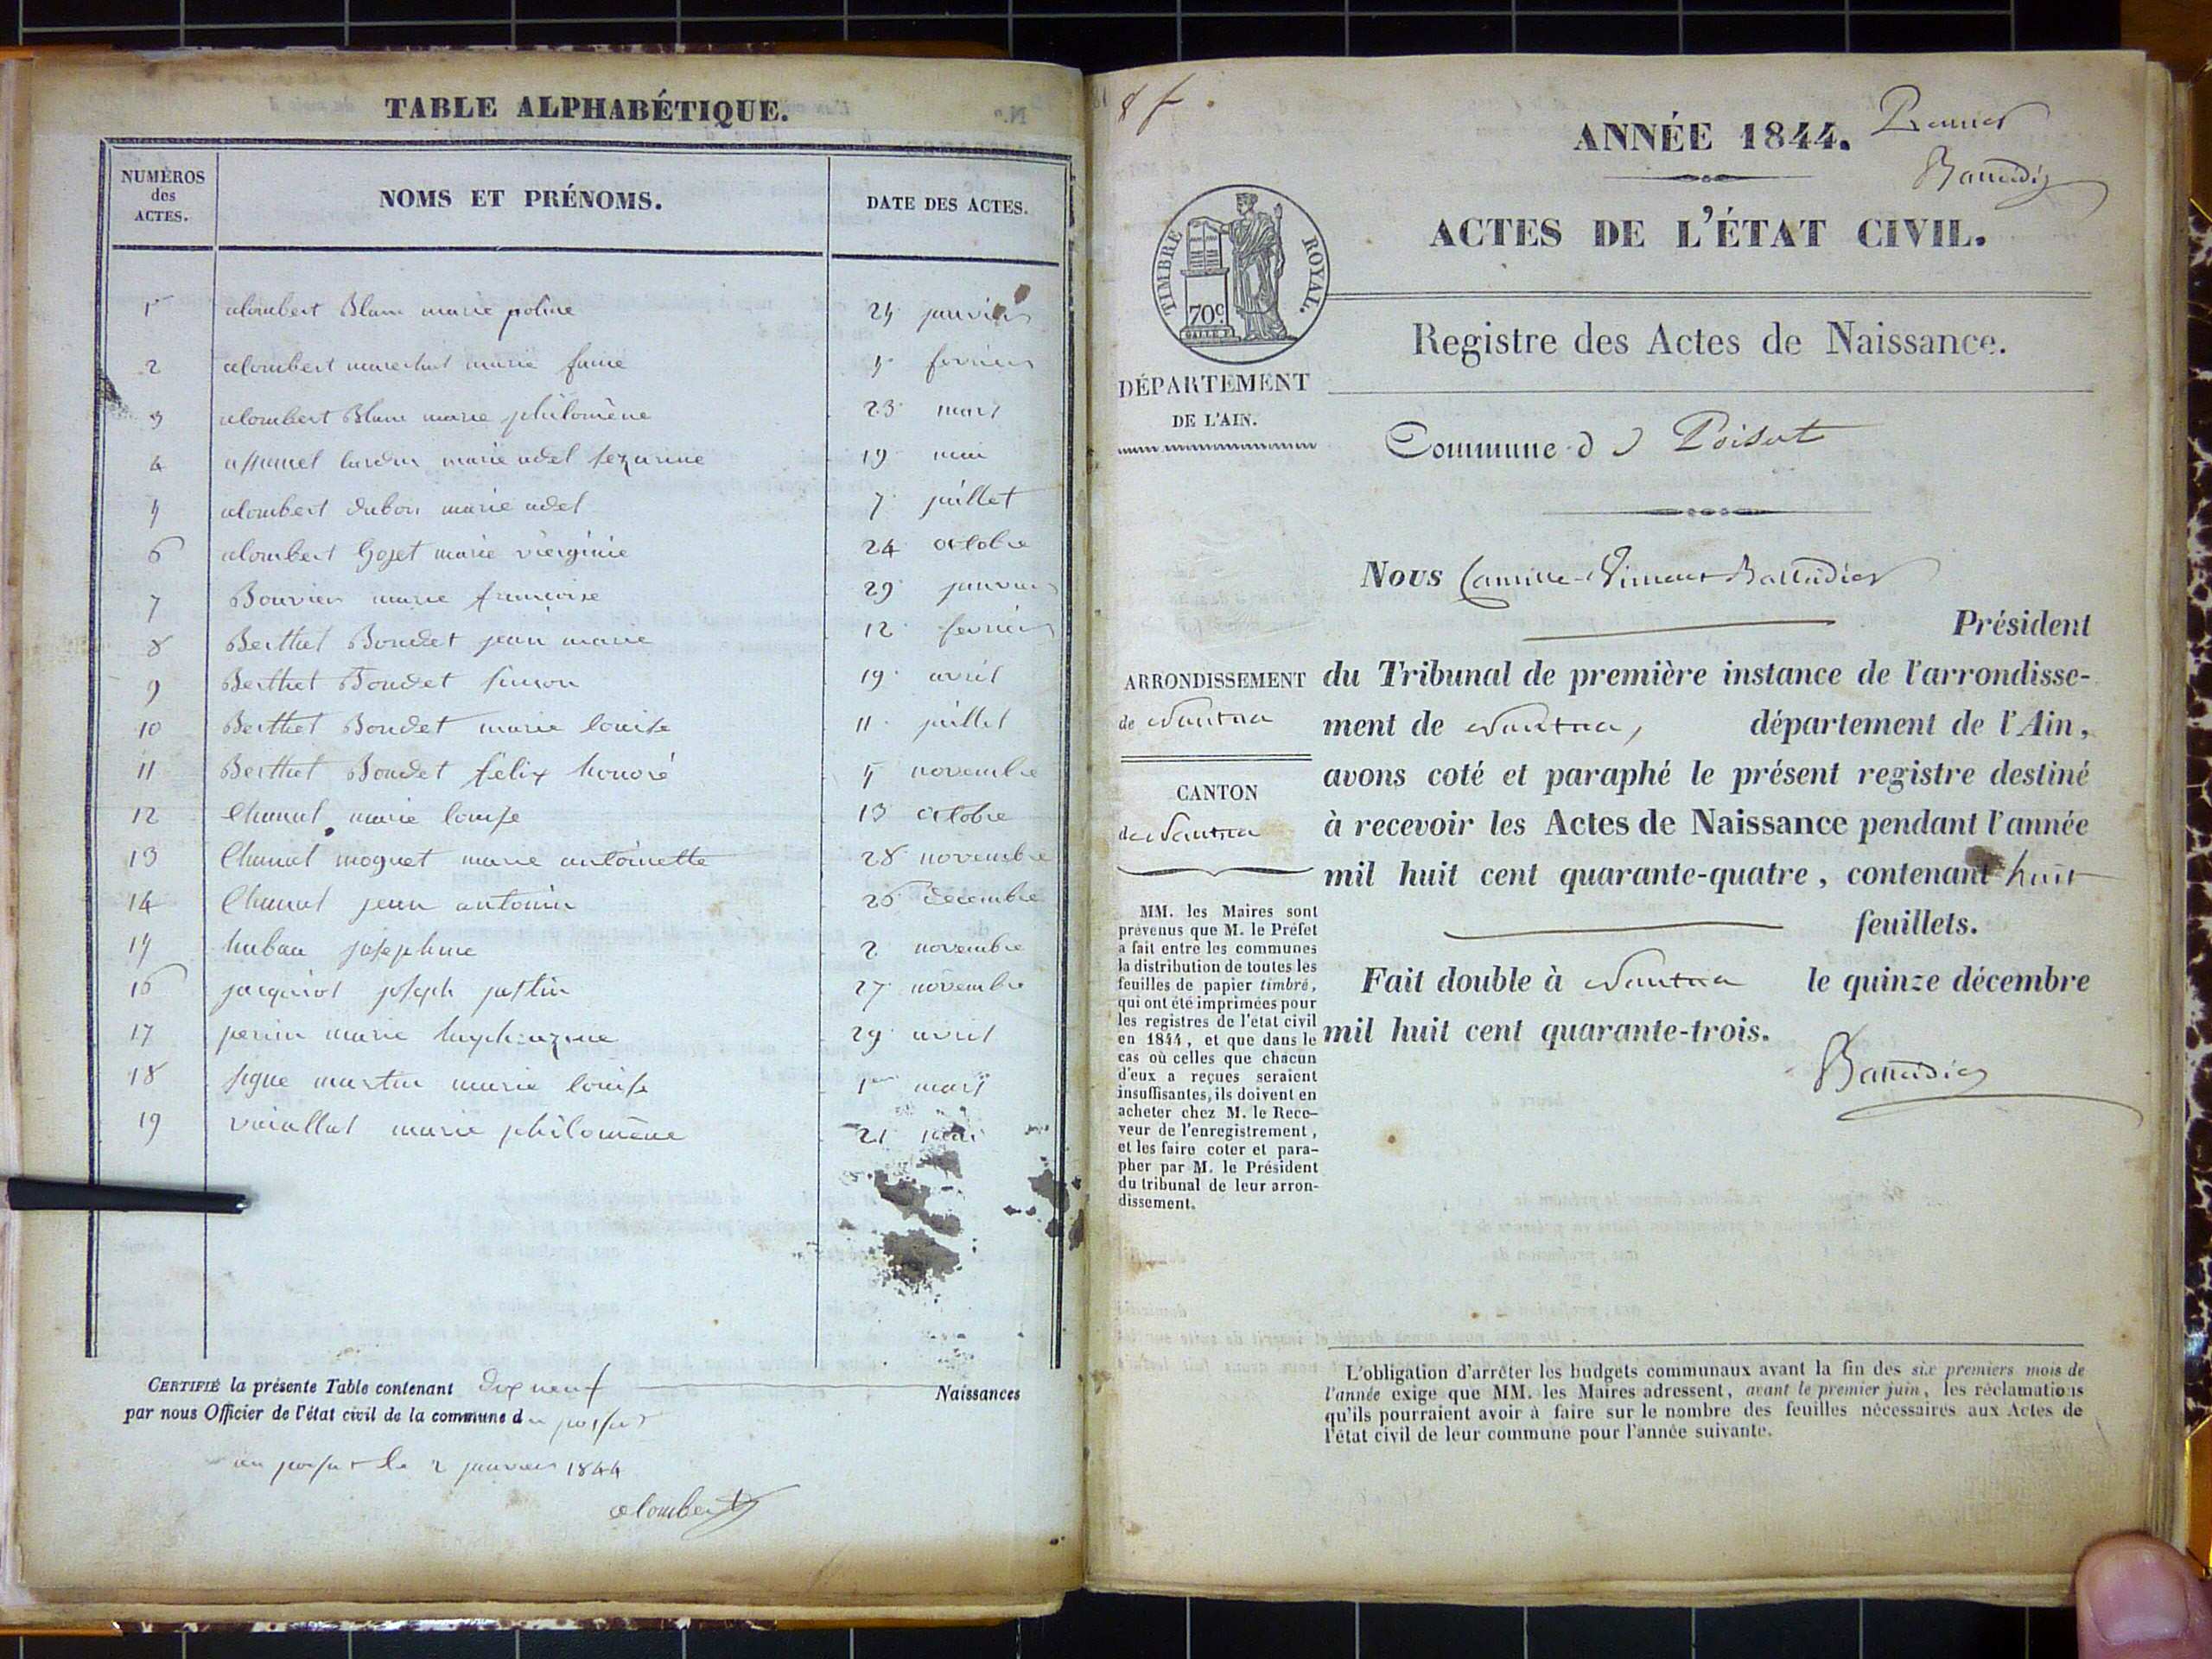 TABLE ALPHABÉTIQUE.
NUMÉROS des ACTES. NOMS ET PRÉNOMS. DATE DES ACTES.
1 alombert Blanc marie poline 25 janvier
2 alombert marechal marie fanie 5 fevrier
3 alombert Blanc marie philomène 23 mars
4 marie adel sezarine 19 mai
5 alombert dubois marie adel 7 juillet
6 alombert Gojet marie virginie 24 octobre
7 Bouvier marie francoise 29 janvier
8 Berthet Boudet jean marie 12 fevrier
9 Berthet Boudet simon 19 avril
10 Berthet Boudet marie louise 11 juillet
11 Berthet Boudet félix honoré 5 novembre
12 Chanal marie louise 13 octobre
13 Chanal moguet marie antoinette 28 novembre
14 Chanal jean antonin 26 décembre
15 josephine 2 novembre
16 jacquiot joseph justin 27 novembre
17 perin marie 29 avril
18 martin marie louise 1er mars
19 marie philomène 21 mai
CERTIFIÉ la présente Table contenant dix neuf Naissances
par nous Officier de l'état civil de la commune d
le 2 janvier 1844
alombert
8 f
ANNÉE 1844. Premier
ACTES DE L'ÉTAT CIVIL.
TIMBRE ROYAL.
70c
Registre des Actes de Naissance.
DÉPARTEMENT
DE L'AIN.
Commune de Poisat
Nous Camille-
Président
ARRONDISSEMENT
de Nantua
CANTON
de Nantua
du Tribunal de première instance de l'arrondisse-
ment de Nantua, département de l'Ain,
avons coté et paraphé le présent registre destiné
à recevoir les Actes de Naissance pendant l'année
mil huit cent quarante-quatre, contenant huit
feuillets.
Fait double à Nantua le quinze décembre
mil huit cent quarante-trois.
MM. les Maires sont
prévenus que M. le Préfet
a fait entre les communes
la distribution de toutes les
feuilles de papier timbré,
qui ont été imprimées pour
les registres de l'état civil
en 1844, et que dans le
cas où celles que chacun
d'eux a reçues seraient
insuffisantes, ils doivent en
acheter chez M. le Rece-
veur de l'enregistrement,
et les faire coter et para-
pher par M. le Président
du tribunal de leur arron-
dissement.
L'obligation d'arrêter les budgets communaux avant la fin des six premiers mois de
l'année exige que MM. les Maires adressent, avant le premier juin, les réclamations
qu'ils pourraient avoir à faire sur le nombre des feuilles nécessaires aux Actes de
l'état civil de leur commune pour l'année suivante.